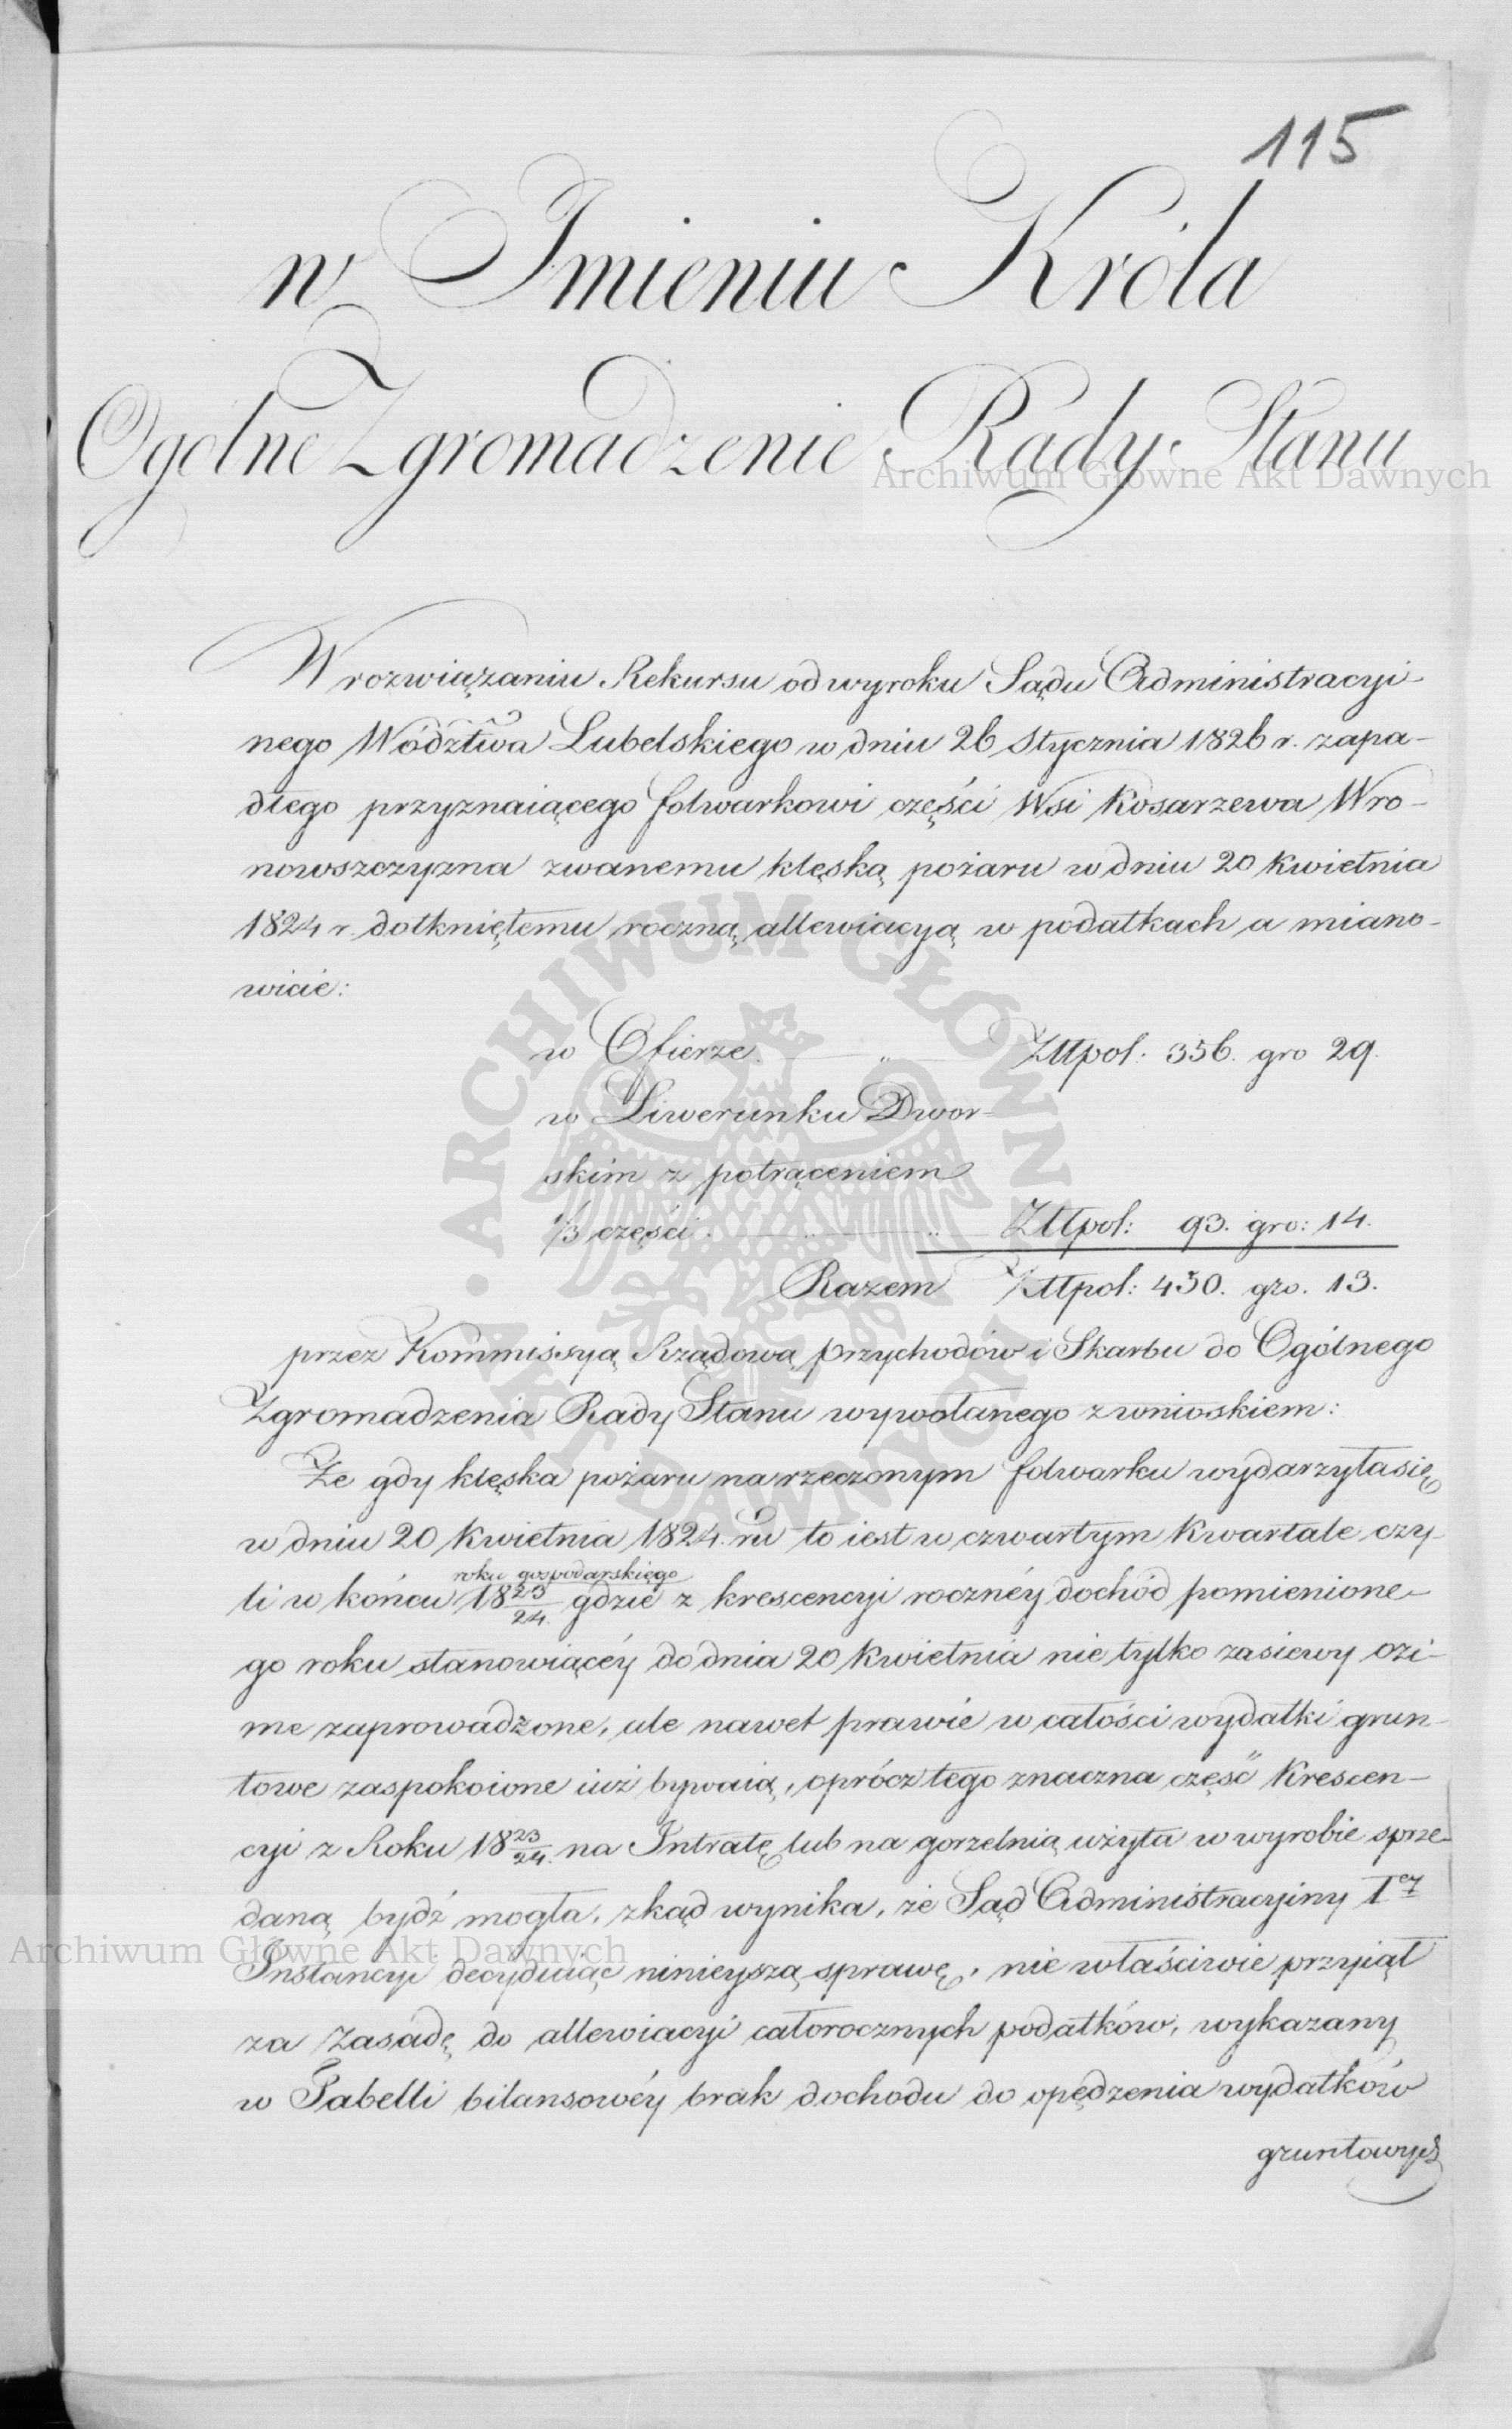 115
w Imieniu Króla
Ogólne Zgromadzenie Rady Stanu
Archiwum Główne Akt Dawnych
W rozwiązaniu Rekursu od wyroku Sądu Administracyi-
nego Wództwa Lubelskiego w dniu 26 Stycznia 1826 r. zapa-
dłego przyznaiącego folwarkowi części Wsi Kosarzewa Wro-
nowszczyzna zwanemu klęską pożaru w dniu 20 Kwietnia
1824 r. dotkniętemu roczną allewiacyą w podatkach a miano-
wicie:
w Ofierze. „ Złłpol: 356. gro 29.
w Liwerunku Dwor-
skim z potrąceniem
1/3 części. „ „ Złłpol: 93. gro: 14.
Razem Złłpol: 450. gro. 13.
przez Kommissyą Rządową Przychodów i Skarbu do Ogólnego
Zgromadzenia Rady Stanu wywołanego z wnioskiem:
Że gdy klęska pożaru na rzeczonym folwarku wydarzyła się
w dniu 20 Kwietnia 1824. ru to iest w czwartym Kwartale czy-
roku gospodarskiego
li w końcu 18 23/24. gdzie z krescencyi rocznéy dochód pomienione-
go roku stanowiącéy do dnia 20 Kwietnia nie tylko zasiewy ozi-
me zaprowadzone, ale nawet prawie w całości wydatki grun-
towe zaspokoione iuż bywaią, oprócz tego znaczna część Krescen-
cyi z Roku 18 23/24. na Intratę lub na gorzelnią użyta w wyrobie sprze-
daną bydź mogła, zkąd wynika, że Sąd Administracyiny Iey
Archiwum Główne Akt Dawnych
Instancyi decyduiąc ninieyszą sprawę, nie właściwie przyiął
za Zasadę do allewiacyi całorocznych podatków, wykazany
w Tabelli bilansowéy brak dochodu do opędzenia wydatków
gruntowych
ARCHIWUM GŁÓWNE AKT DAWNYCH